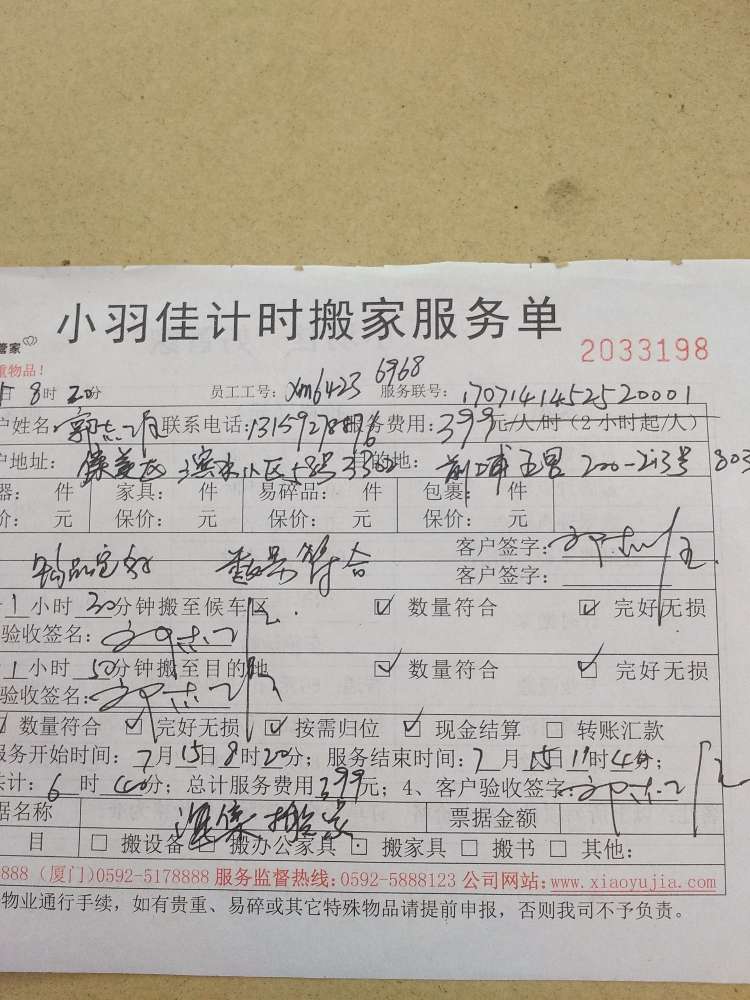 小羽佳计时搬家服务单
管家
2033198
重物品！
日 8时 20分 员工工号：xm6423 6968 服务联号：1707141452520001
户姓名： 联系电话： 服务费用：399元/人/时（2小时起/人）
户地址： 的地： 前埔 200-213号 803
器： 件 家具： 件 易碎品： 件 包裹： 件
价： 元 保价： 元 保价： 元 保价： 元
物品完好 数量符合 客户签字：
客户签字：
1小时30分钟搬至候车区 ☑ 数量符合 ☑ 完好无损
验收签名：
1小时50分钟搬至目的地 ☑ 数量符合 ☑ 完好无损
验收签名：
☑ 数量符合 ☑ 完好无损 ☑ 按需归位 ☑ 现金结算 □ 转账汇款
服务开始时间：7月15日8时20分；服务结束时间：7月15日11时40分；
共计：6时40分；总计服务费用399元；4、客户验收签字：
据名称 票据金额
目 □ 搬设备 □ 搬办公家具 □ 搬家具 □ 搬书 □ 其他：
888 (厦门)0592-5178888 服务监督热线：0592-5888123 公司网站：www.xiaoyujia.com
物业通行手续，如有贵重、易碎或其它特殊物品请提前申报，否则我司不予负责。